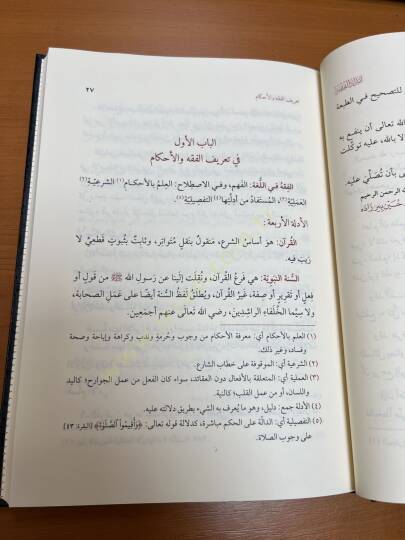 تعريف الفقه والأحكام
٢٧
الباب الأول
في تعريف الفقه والأحكام
الفِقهُ فـي اللُّغة: الفَهم، وفـي الاصطِلاح: العِلمُ بالأحكـامِ(١) الشرعيّـةِ(٢)
العَمَليّة(٣)، المُستَفادُ من أدلّتِها(٤) التفصيليّة(٥).
الأدلة الأربعة:
القُرآن: هو أساسُ الشرع، مَنقولٌ بنَقلٍ مُتواتِر، وثابتٌ بثُبوتٍ قَطعيٍّ لا
رَيبَ فيه.
السُّنة النبَويّة: هي فَرعُ القُرآن، ونُقِلَت إلينا عن رسول الله ﷺ من قَولٍ أو
فِعلٍ أو تَقريرٍ أو صِفة، غَيرَ القُرآن، ويُطلَقُ لَفظُ السُّنة أيضًا على عَمَلِ الصحابة،
ولا سِيَّما الخُلَفاءِ الراشِدِين، رضي الله تعالى عنهم أجمَعِين.
(١) العلم بالأحكام أي: معرفة الأحكام من وجوب وحُرمةٍ ونَدب وكراهة وإباحة وصحة
وفساد، وغير ذلك.
(٢) الشرعية أي: الموقوفة على خطاب الشارع.
(٣) العملية أي: المتعلقة بالأفعال دون العقائد، سواء كان الفعل من عمل الجوارح؛ كاليد
واللسان، أو من عمل القلب؛ كالنية.
(٤) الأدلة جمع: دليل، وهو ما يُعرف به الشيء بطريق دلالته عليه.
(٥) التفصيلية أي: الدالّة على الحكم مباشرة، كدلالة قوله تعالى: ﴿وَأَقِيمُوا۟ ٱلصَّلَوٰةَ﴾ [البقرة: ٤٣]
على وجوب الصلاة.
للتصحيح في الطبعة
الله تعالى أن ينفع به
لا بالله، عليه توكّلت
بأن تُصَلِّيَ عليه.
الرحمن الرحيم